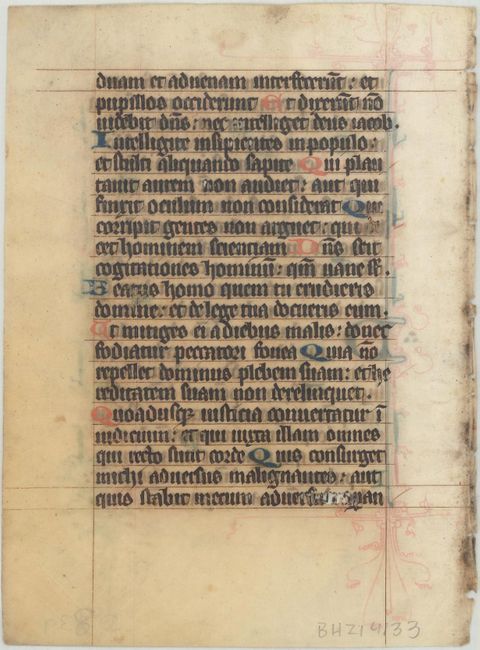 duam et aduenam interfecerūt: et
pupillos occiderunt Et dixerūt nō
uidebit dn̄s: nec intelliget deus iacob.
Intelligite insipientes in populo:
et stulti aliquando sapite Qui plan
tauit aurem non audiet: aut qui
finxit oculum non considerat Qui
corripit gentes non arguet: qui do
cet hominem scienciam Dn̄s scit
cogitationes hominū: qm̄ uane st̄.
Beatus homo quem tu erudieris
domine: et de lege tua docueris eum.
Et mitiges ei a diebus malis: donec
fodiatur peccatori fouea Quia nō
repellet dominus plebem suam: et he
reditatem suam non derelinquet.
Quoadusqꝫ iusticia conuertatur ī
iudicium: et qui iuxta illam omnes
qui recto sunt corde Quis consurget
michi aduersus malignantes: aut
quis stabit mecum aduersus
BHZ1 4133